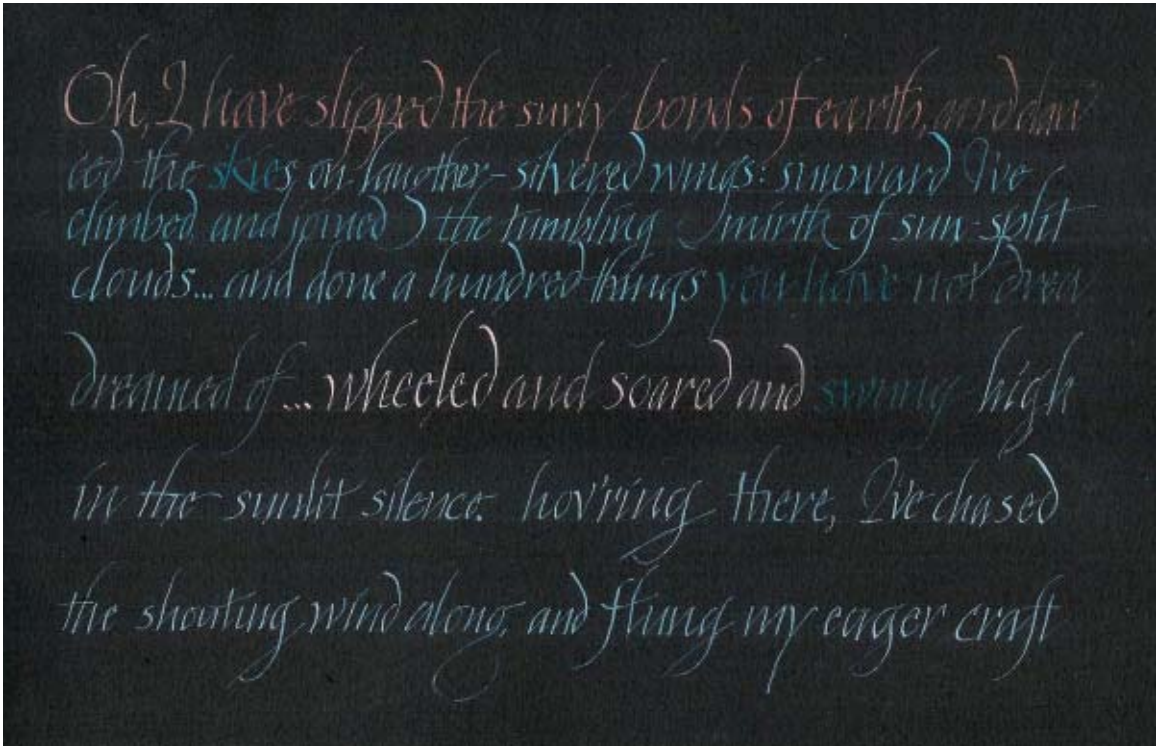 Oh, I have slipped the surly bonds of earth, and dan
ced the skies on laugther-silvered wings: sunward I've
climbed and joined the tumbling mirth of sun-split
clouds... and done a hundred things you have not drea
dreamed of ... wheeled and soared and swung high
in the sunlit silence. hov'ring there, I've chased
the shouting wind along, and flung my eager craft